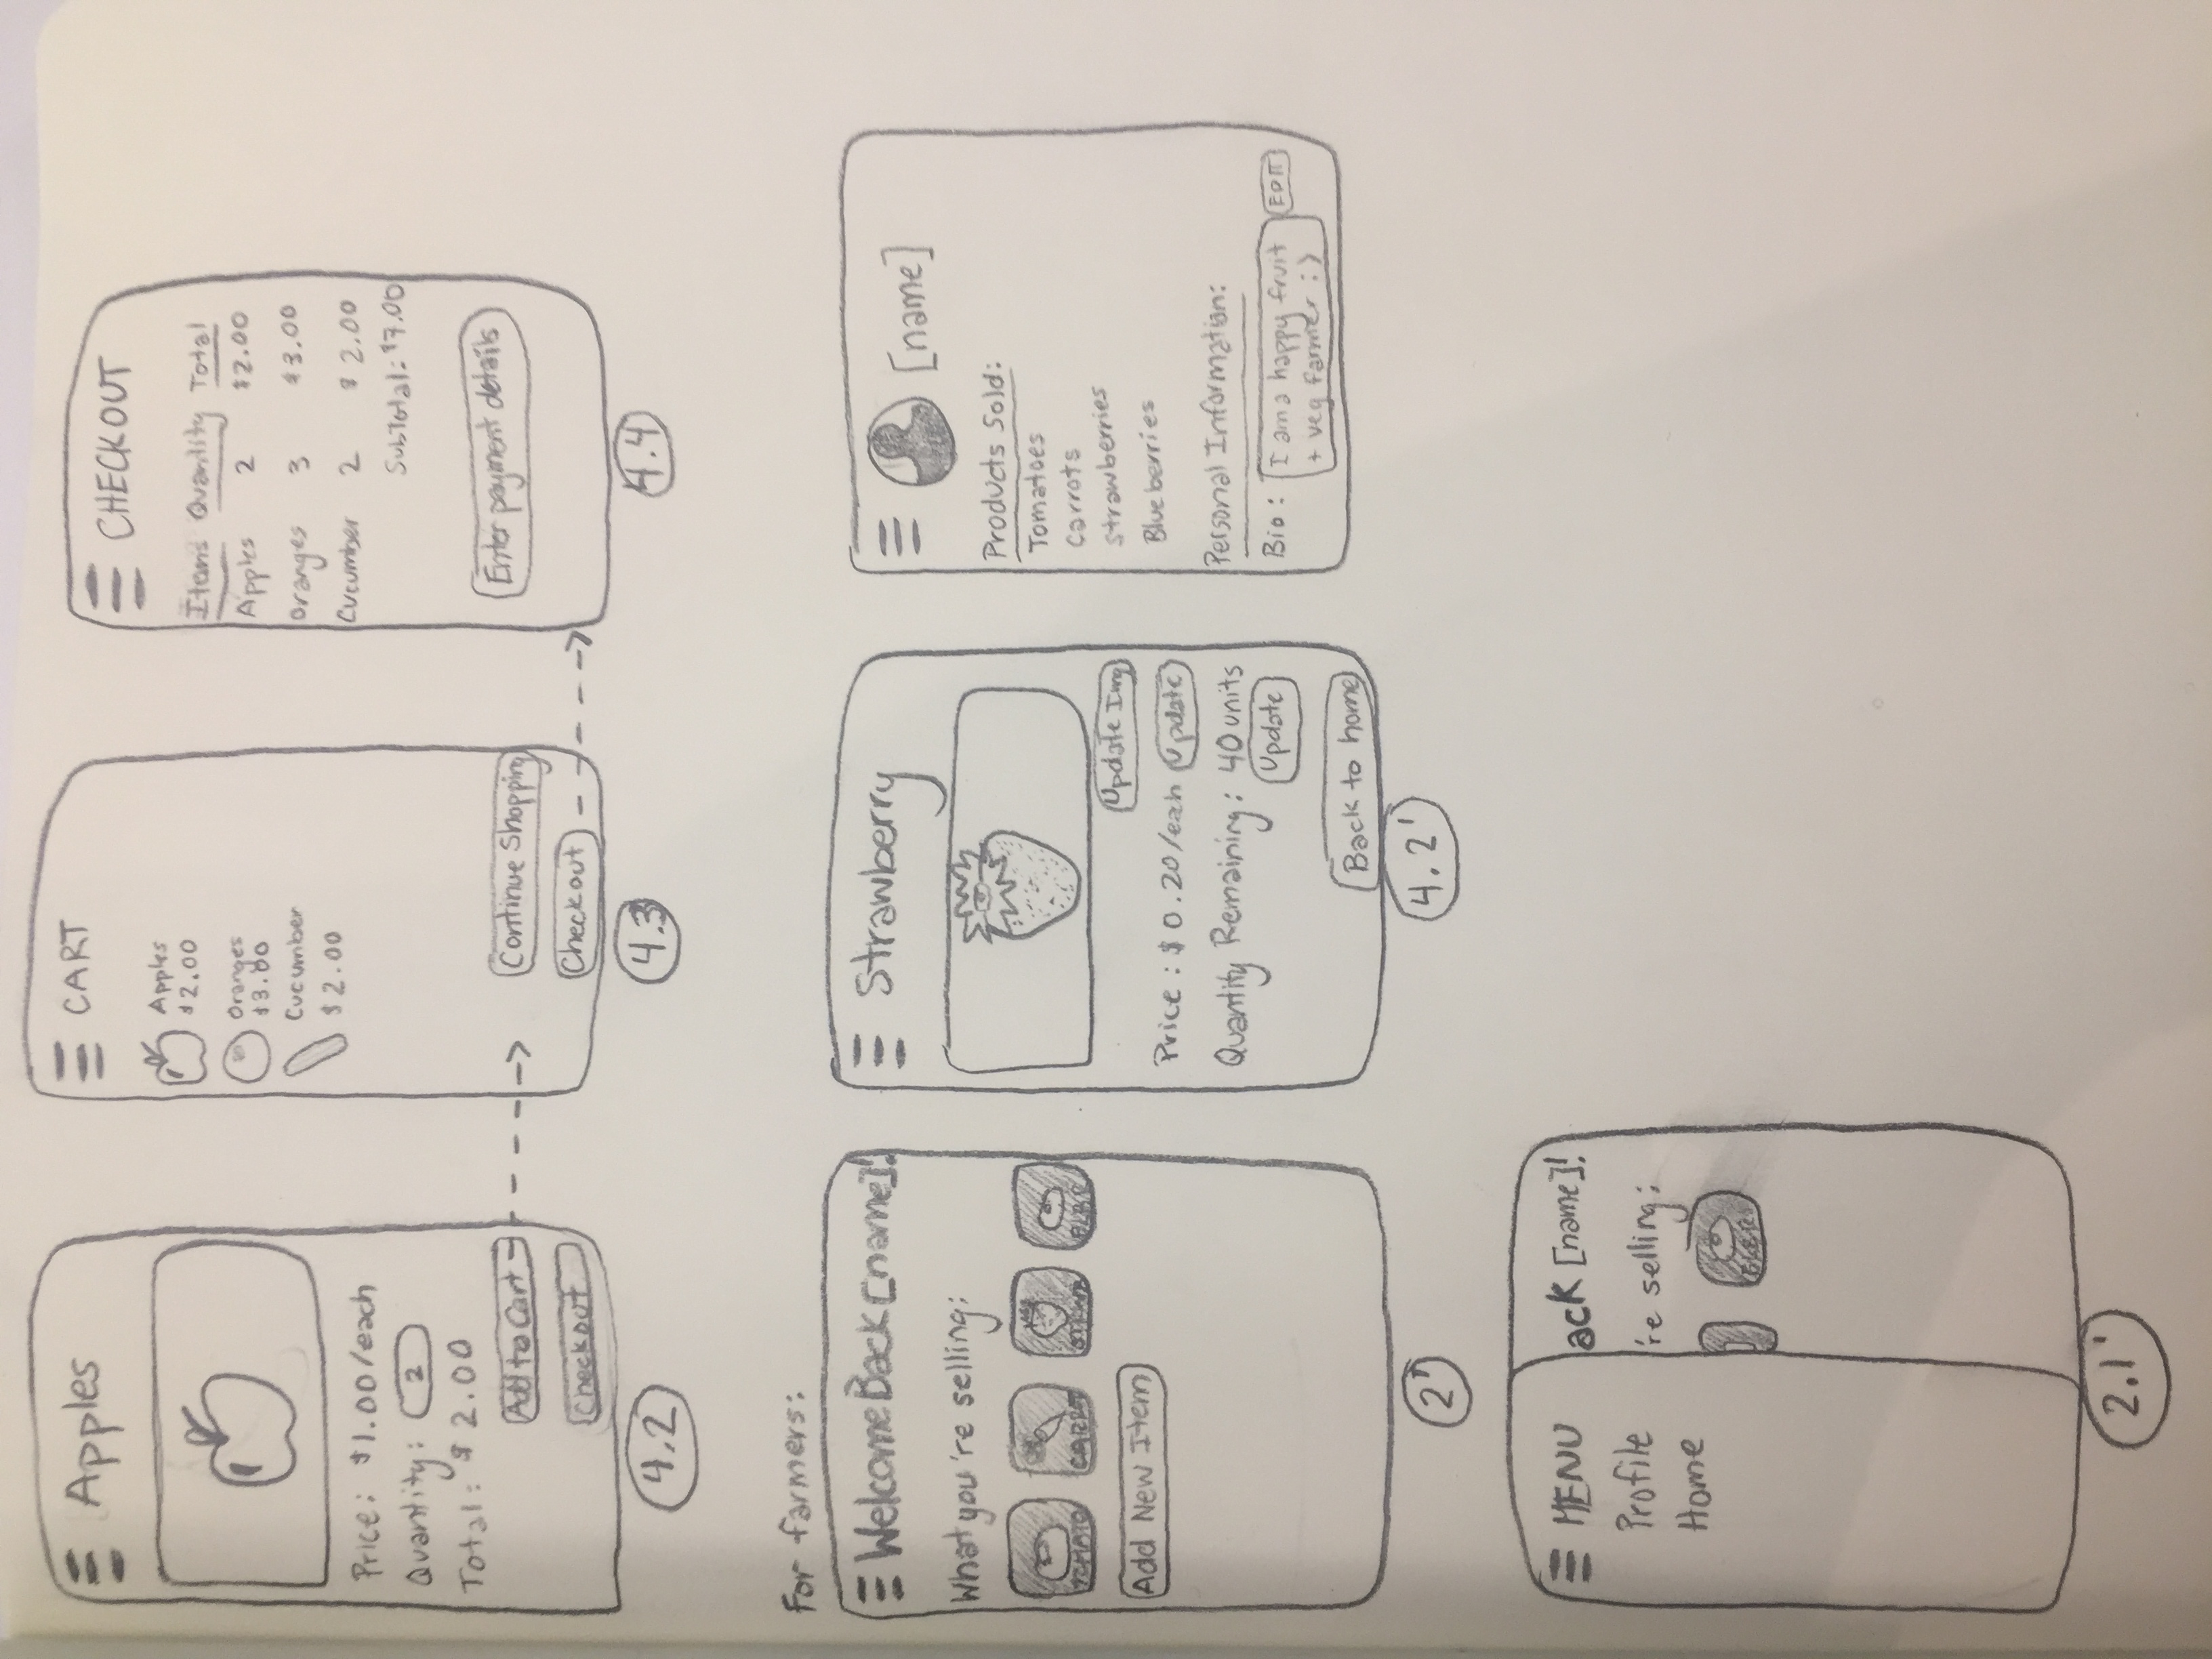 Apples
Price: $1.00/each
Quantity: 2
Total: $2.00
Add to Cart
Checkout
4.2
CART
Apples
$2.00
Oranges
$3.00
Cucumber
$2.00
Continue Shopping
Checkout
4.3
CHECKOUT
Items Quantity Total
Apples 2 $2.00
Oranges 3 $3.00
Cucumber 2 $2.00
SubTotal: $7.00
Enter payment details
4.4
For farmers:
Welcome Back [name]!
What you're selling:
TOMATO CARROT STRWB BLBR
Add New Item
2'
Strawberry
Update Img
Price: $0.20/each Update
Quantity Remaining: 40 units
Update
Back to home
4.2'
[name]
Products Sold:
Tomatoes
Carrots
Strawberries
Blueberries
Personal Information:
Bio: I am a happy fruit EDIT
+ veg farmer :)
MENU
Profile
Home
ack [name]!
're selling:
BLBR
2.1'